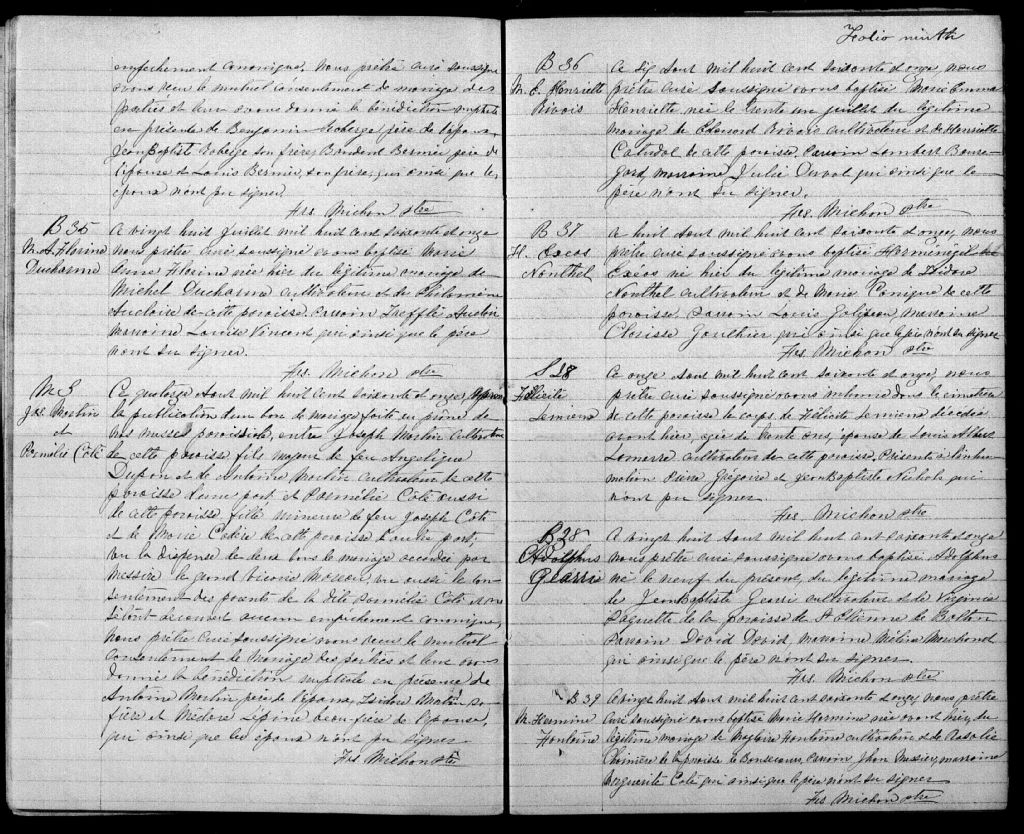 empêchement canonique. Nous prêtre curé soussigné
avons reçu le mutuel consentement de mariage des
parties et leur avons donné la bénédiction nuptiale
en présence de Benjamin Roberge père de l'époux,
Jean Baptist Roberge son frère, Bernier père de
l'épouse et Louis Bernier, son frère, qui ainsi que les
époux n'ont pu signer.
Frs. Michon ptre
B 35
M. A. Florine
Ducharme
Ce vingt huit Juillet mil huit cent soixante et onze
nous prêtre curé soussigné avons baptisé Marie
Anne Florine née hier du légitime mariage de
Michel Ducharme cultivateur et de Philomène
Auclaire de cette paroisse. Parrain Trefflé Auclair
marraine Louise Vincent qui ainsi que le père
n'ont su signer.
Frs. Michon ptre
M 3
Jos. Martin
et
Parmélie Coté
Ce quatorze Aout mil huit cent soixante et onze, après
la publication d'un ban de mariage faite en prône de
nos messes paroissiale, entre Joseph Martin cultivateur
de cette paroisse fils majeur de feu Angelique
Dupon et de Antoine Martin cultivateur de cette
paroisse d'une part, et Parmélie Coté aussi
de cette paroisse fille mineure de feu Joseph Coté
et de Marie de cette paroisse d'autre part,
vu la dispense de deux bans de mariage accordée par
messire le grand vicaire Moreau, vu aussi le con-
sentement des parents de la dite Parmélie Coté et ne
s'étant découvert aucun empêchement canonique,
Nous prêtre curé soussigné avons reçu le mutuel
consentement de mariage des parties et leur avons
donné la bénédiction nuptiale en présence de
Antoine Martin père de l'époux, Isidore Martin son
frère et Médore Lépine beau frère de l'épouse,
qui ainsi que les époux n'ont pu signer
Frs. Michon ptre
Folio ninth
B 36
M. E. Henriette
Rivais
Ce six Aout mil huit cent soixante et onze, nous
prêtre curé soussigné avons baptisé Marie Emma
Henriette née le trente un juillet du légitime
mariage de Edouard Rivais cultivateur et de Henriette
de cette paroisse. Parrain Lambert Beaure-
gard, marraine Julie Duval qui ainsi que le
père n'ont su signer.
Frs. Michon ptre
B 37
H. Exéos
Nonthel
Ce huit Aout mil huit cent soixante et onze, nous
prêtre curé soussigné avons baptisé Herménégil
Exéos né hier du légitime mariage de Isidore
Nonthel cultivateur et de Marie de cette
paroisse. Parrain Louis marraine
Clarisse Gauthier qui ainsi que le père n'ont su signer
Frs. Michon ptre
S 28
Félicité
Lemiere
Ce onze Aout mil huit cent soixante et onze, nous
prêtre curé soussigné avons inhumé dans le cimetière
de cette paroisse le corps de Félicité Lemiere décédée
avant hier, agée de trente ans, épouse de Louis
Lamarre cultivateur de cette paroisse. Présents à l'inhu-
mation Pierre Grégoire et Jean Baptiste Nichols qui
n'ont pu signer
Frs. Michon ptre
B 38
Adolphus
Gearri
Ce vingt huit Aout mil huit cent soixante et onze
nous prêtre curé soussigné avons baptisé Adolphus
né le neuf du présent, du légitime mariage
de Jean Baptiste Gearri cultivateur et de Virginie
Paquette de la paroisse de St Etienne de Bolton
Parrain David David, marraine Mélina Marchand
qui ainsi que le père n'ont su signer.
Frs. Michon ptre
B 39
M. Hermine
Fontaine
Ce vingt huit Aout mil huit cent soixante et onze, nous prêtre
curé soussigné avons baptisé Marie Hermine née avant hier, du
légitime mariage de Magloire Fontaine cultivateur et de Rosalie
de la paroisse de Bonsecours, parrain John Massie, marraine
Marguerite Coté qui ainsi que le père n'ont su signer
Frs. Michon ptre